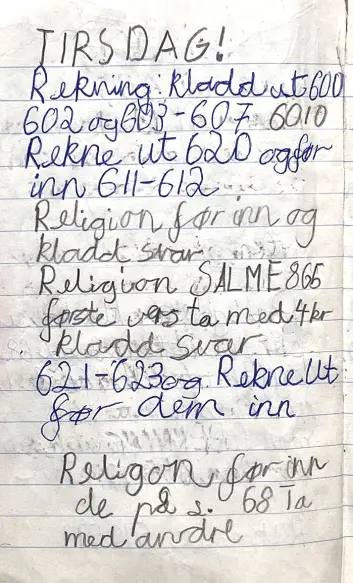 TIRSDAG!
Rekning: kladd ut 600
602 og 603-607 6010
Rekne ut 620 og før
inn 611-612
Religion før inn og
kladd svar
Religion SALME 865
første vers ta med 4kr
kladd svar
621-623 og Rekne Ut
før dem inn
Religon, før inn
de på s. 68 Ta
med andre